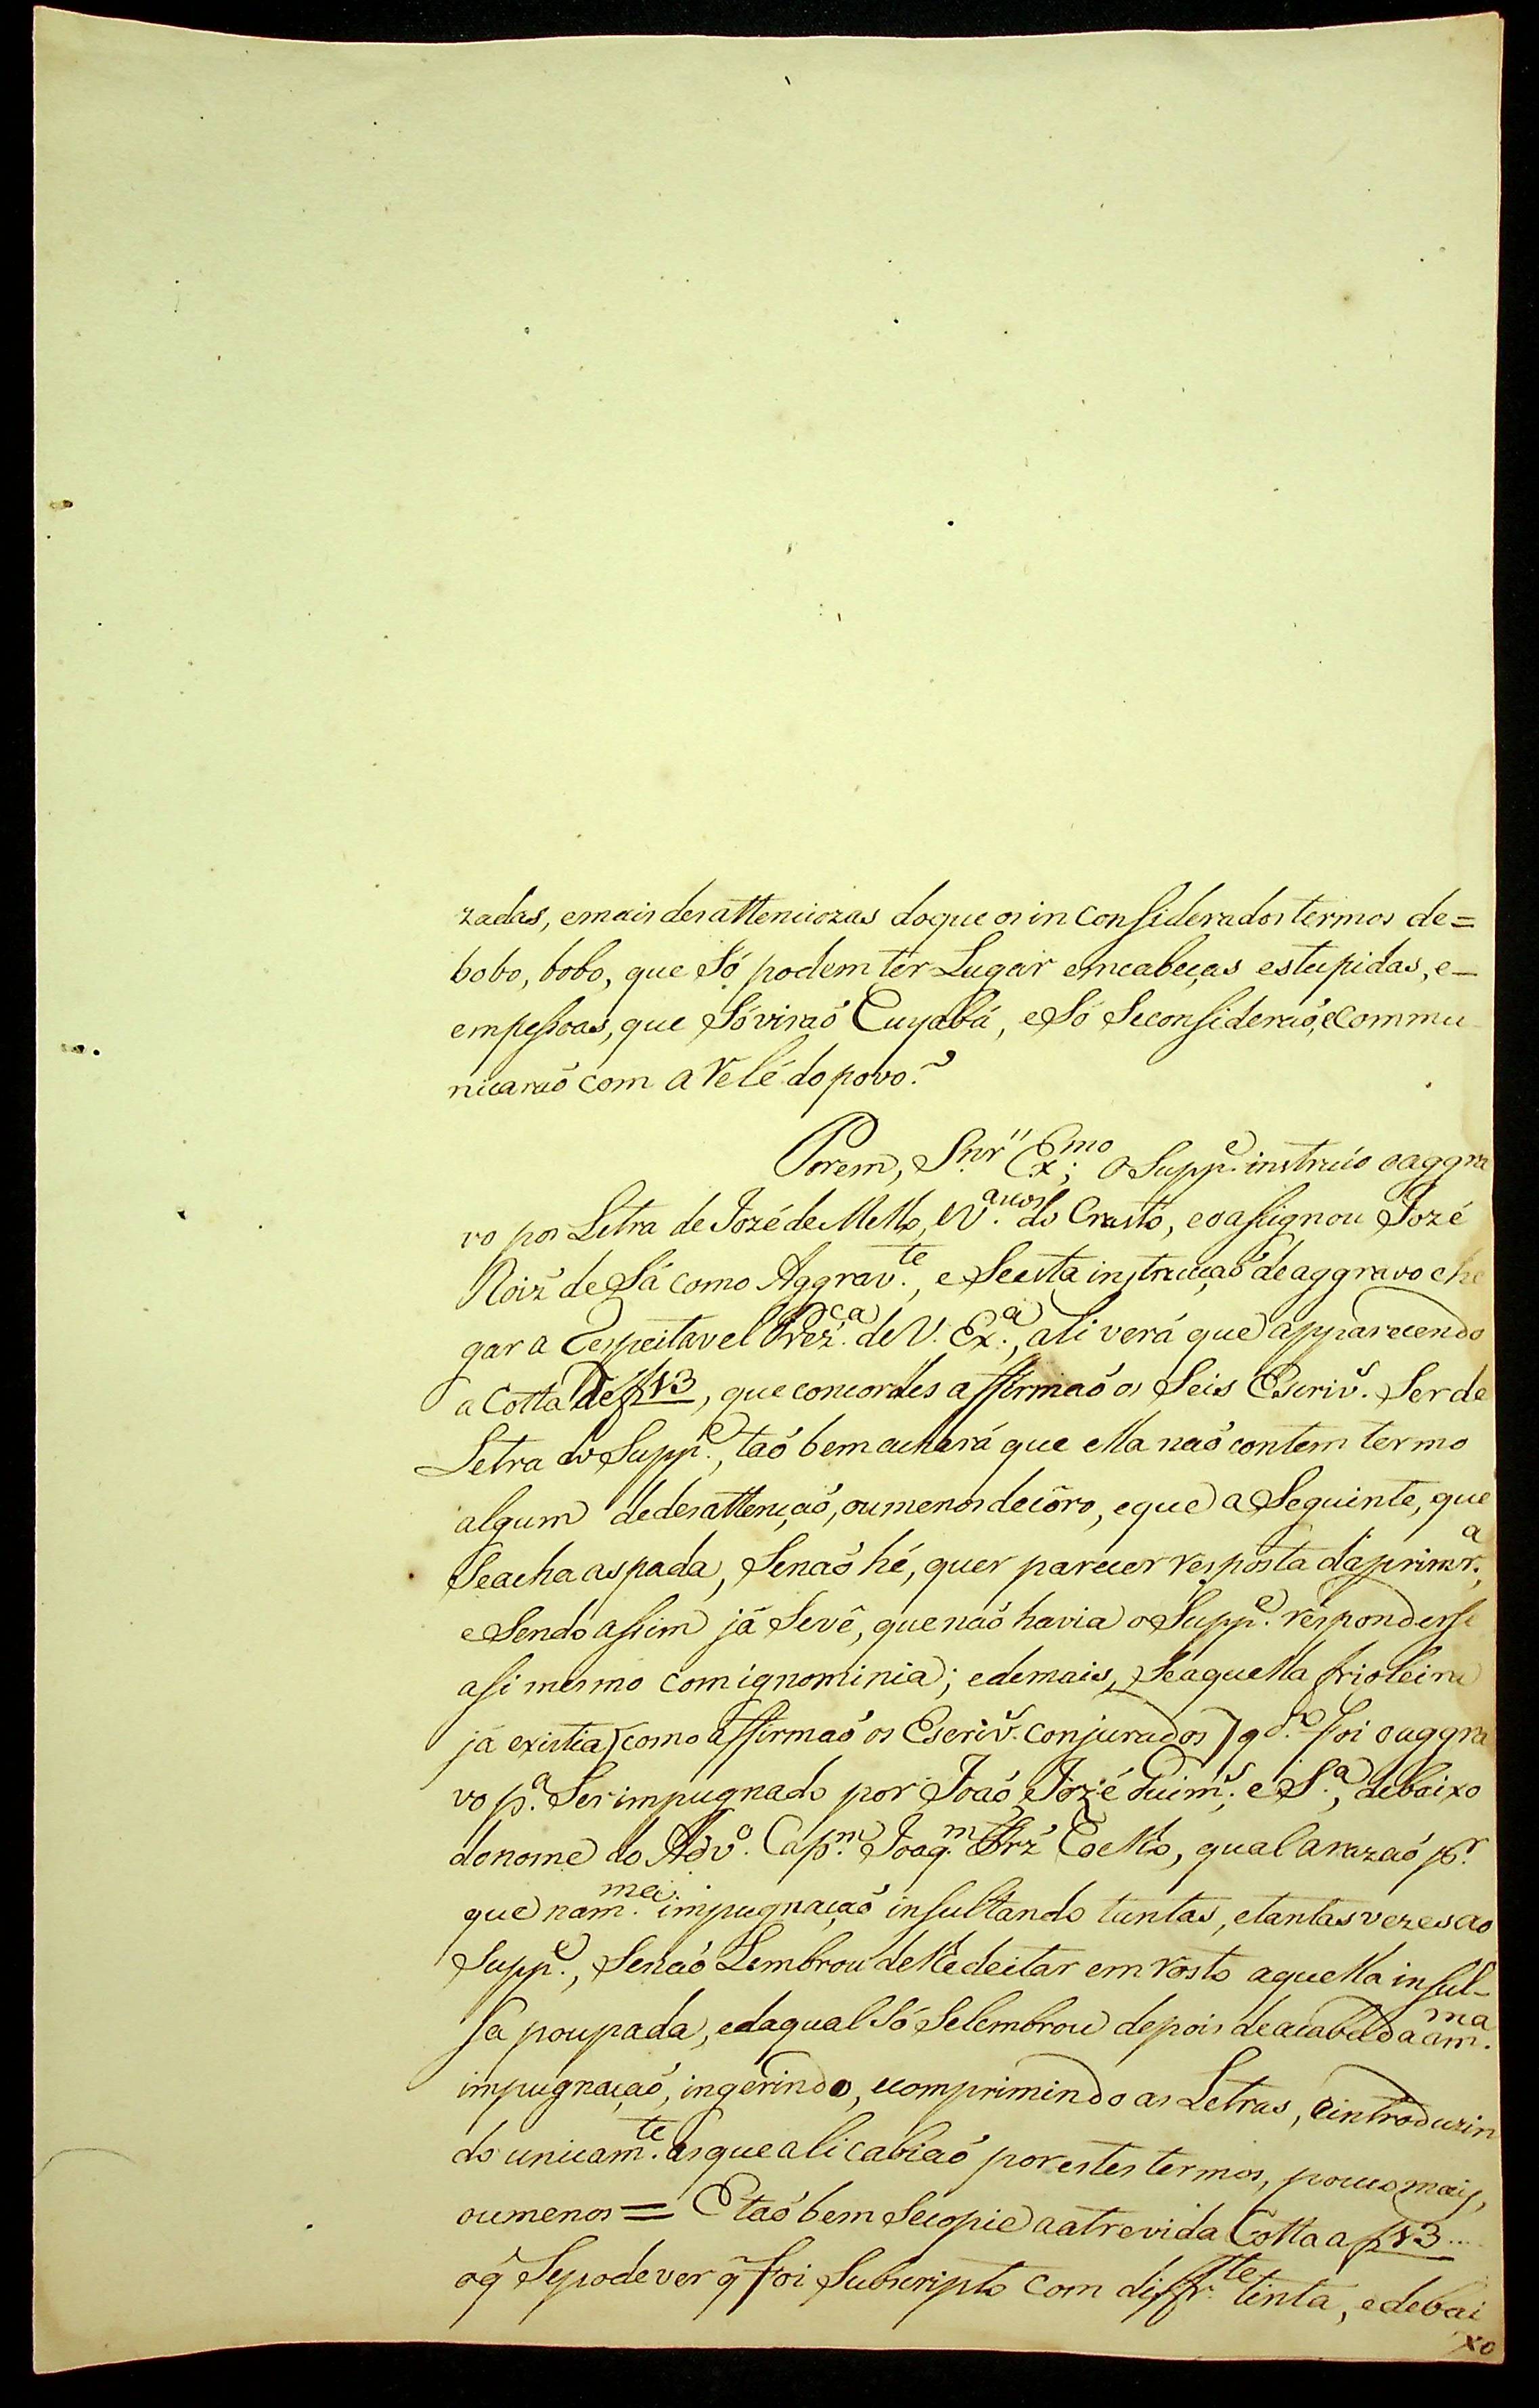 zadas, emais desattenciozas doque os in consideradostermos de=
bobo, bobo, que Só podem ter Lugar emcabeças estupidas, e-
empessoas, que Sóviraó Cuyabá, eSó Seconsideraó, ecommu
nicaraó com a relé dopovo?
Porem, Snr." Ex.mo; o Supp.e instruio oaggra
vo por Letra de Jozé de Mello, e Crasto, eoassignou Jozé
Roiz' de Sá como Aggrav.te, e Seesta instrucçaó deaggravo che
gar a respeitavel Prez.ca de V. Ex.a, ali verá que apparecendo
a Cotta de f 13, que concordes affirmaó os Seis Escriv.s Serde
Letra do Supp.e, taó bem achará que ella naó contem termo
algum dedesattençaó, oumenos decôro, eque a Seguinte, que
Seacha aspada, Senaó hé, quer parecer resposta daprimr.a,
eSendo assim já Sevê, quenaó havia oSupp.e responderse
asi mesmo comignominia; edemais, Seaquella frioleira
já existia (como affirmaó os Escriv.s conjurados) qd.o foi oaggra
vo p.a Serimpugnado por Joaó Jozé Guim.s e S.a, debaixo
donome do Adv.o Cap.m Joaq.m Coelho, qual arazaó p.r
que nam.ma impugnaçaó insultando tantas, etantasvezesao
Supp.e, Senaó Lembrou delhedeitar em rosto aquella insul-
sa poupada, edaqual Só Selembrou depois deacabada am.ma
impugnaçaó, ingerindo, ecomprimindo as Letras, eintroduzin
do unicam.te asquealicabiaó porestes termos, poucomais,
oumenos = Etaó bem Secopie aatrevida Cotta a f 13....
oq̃ Sepodever q̃ foi Subscripto com diffr.te tinta, edebai
xo